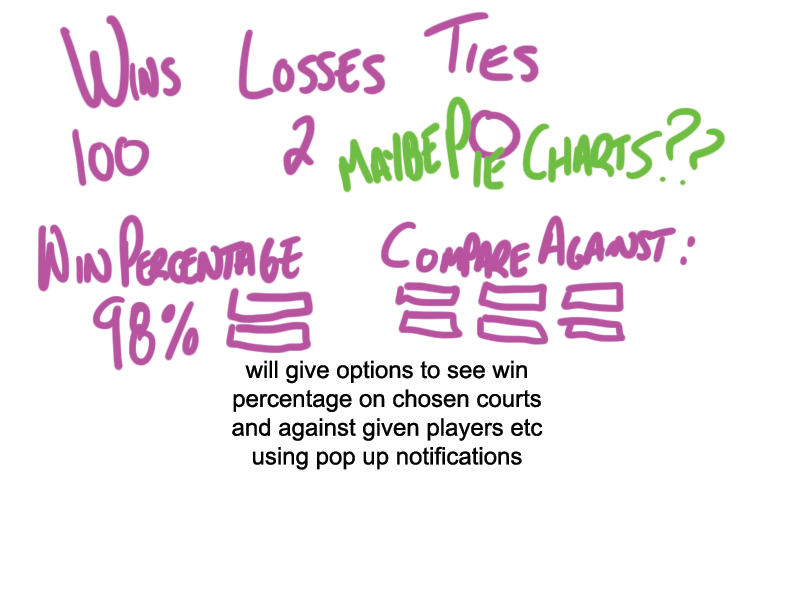 WINS LOSSES TIES
100 2 0
MAYBE PIE CHARTS??
WIN PERCENTAGE COMPARE AGAINST:
98%
will give options to see win
percentage on chosen courts
and against given players etc
using pop up notifications